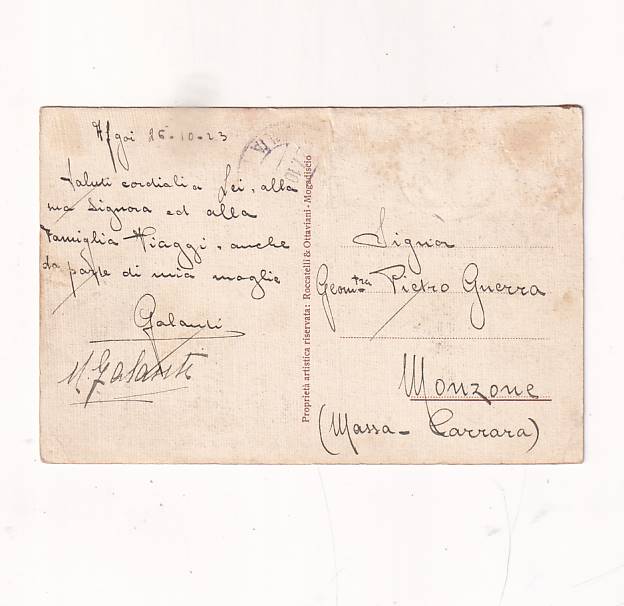 Afgoi 26-10-23
Saluti cordiali a Lei, alla
sua Signora ed alla
Famiglia Viaggi, anche
da parte di mia moglie
Galanti
M. Galanti
Proprietà artistica riservata: Roccatelli & Ottaviani - Mogadiscio
Geom.tra Pietro Guerra
Monzone
(Massa - Carrara)